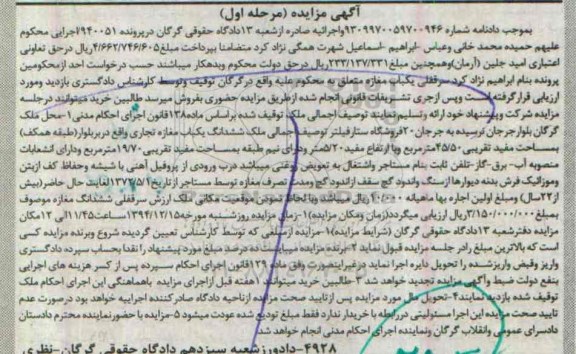 آگهی مزایده (مرحله اول)
بموجب دادنامه شماره ۹۳۰۹۹۷۰۰۵۹۷۰۰۹۴۶ واجرائیه صادره ازشعبه ۱۳دادگاه حقوقی گرگان درپرونده ۹۴۰۰۵۱اجرایی محکوم
علیهم حمیده محمد خانی وعباس -ابراهیم -اسماعیل شهرت همگی نژاد کرد متضامنا بپرداخت مبلغ۴/۶۶۲/۷۴۶/۶۰۵ریال درحق تعاونی
اعتباری امید جلین (آرمان)وهمچنین مبلغ ۲۳۳/۱۳۷/۳۳۱ریال درحق دولت محکوم وبدهکار میباشند حسب درخواست احد ازمحکومین
پرونده بنام ابراهیم نژاد کرد سرقفلی یکباب مغازه متعلق به محکوم علیه واقع درگرگان توقیف وتوسط کارشناس دادگستری بازدید ومورد
ارزیابی قرارگرفته است وپس ازجری تشریفات قانونی انجام شده ازطریق مزایده حضوری بفروش میرسد طالبین خرید میتوانند درجلسه
مزایده شرکت وپیشنهاد خود ارائه وتسلیم نمایند توصیف اجمالی ملک توقیف شده براساس ماده۱۳۸قانون اجرای احکام مدنی ۱-محل ملک
گرگان بلوارجرجان نرسیده به جرجان ۲۰فروشگاه ستارفیلتر توصیف اجمالی ملک ششدانگ یکباب مغازه تجاری واقع دربربلوار(طبقه همکف)
بمساحت مفید تقریبی ۴۵/۵۰مترمربع وبا ارتفاع مفید ۵/۲۰متر ودرای نیم طبقه بمساحت مفید تقریبی ۱۹/۷۰مترمربع ودارای انشعابات
منصوبه آب- برق-گاز-تلفن ثابت بنام مستاجر واشتغال به تعویض روغنی میباشد درب ورودی از پروفیل آهنی با شیشه وحفاظ کف ازبتن
وموزائیک فرش بدنه دیوارها ازسنگ واندود گچ سقف ازاندود گچ ومدت تصرف مغازه توسط مستاجر از تاریخ۱۳۷۲/۵/۱لغایت حال حاضر(بیش
از۲۲سال) ومبلغ اولین اجاره بها ماهیانه ریال میباشد وبا لحاظ نمودن موقعیت مکانی ملک ارزش سرقفلی ششدانگ مغازه موصوف
بمبلغ۳/۱۵۰/۰۰۰/۰۰۰ریال ارزیابی میگردد(زمان ومکان مزایده)۱-زمان مزایده روزشنبه مورخه۱۳۹۴/۱۲/۱۵ساعت۱۱/۴۵الی ۱۲مکان
مزایده دفترشعبه ۱۳دادگاه حقوقی گرگان (شرایط مزایده)۱-مزایده ازمبلغی که توسط کارشناس تعیین گردیده شروع وبرنده مزایده کسی
است که بالاترین مبلغ رادر جلسه مزایده قبول نماید ۲-برنده مزایده میبایست ده درصد مبلغ مورد پیشنهاد را نقدا بحساب سپرده دادگستری
واریز وفیض واریزشنده را تحویل دایره اجرا نماید درغیراینصورت وفق ماده ۱۲۹قانون اجرای احکام سپرده پس از کسر هزینه های اجرایی
بنفع دولت ضبط وآگهی مزایده تجدید خواهد شد ۳-طالبین خرید میتوانند ۱هفته قبل ازاجرای مزایده باهماهنگی این اجرای احکام ملک
توقیف شده بازدید نمایند۴-تحویل مال مورد مزایده پس ازتایید صحت مزایده ازناحیه دادگاه صادرکننده اجراییه خواهد بود درصورت عدم
تایید صحت مزایده این اجرا مسئولیتی دررابطه با خریدار ندارد فقط مبلغ تودیع شده عودت میشود ۵-مزایده با حضورنماینده محترم دادستان
دادسرای عمومی وانقلاب گرگان ونماینده اجرای احکام مدنی انجام خواهد شد
۴۹۲۸-دادورزشعبه سیزدهم دادگاه حقوقی گرگان-نظری